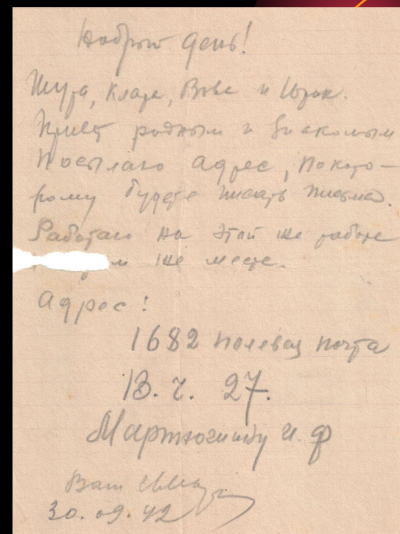 Добрый день!
Шура, Клара, Вова и Юрик.
Привет родным и знакомым
Посылаю адрес, по кото-
рому будете писать письма.
Работаю на этой же работе
м же месте.
Адрес!
1682 полевая почта
В. ч. 27.
Мартюгину И. Ф
Ваш
30.09.42